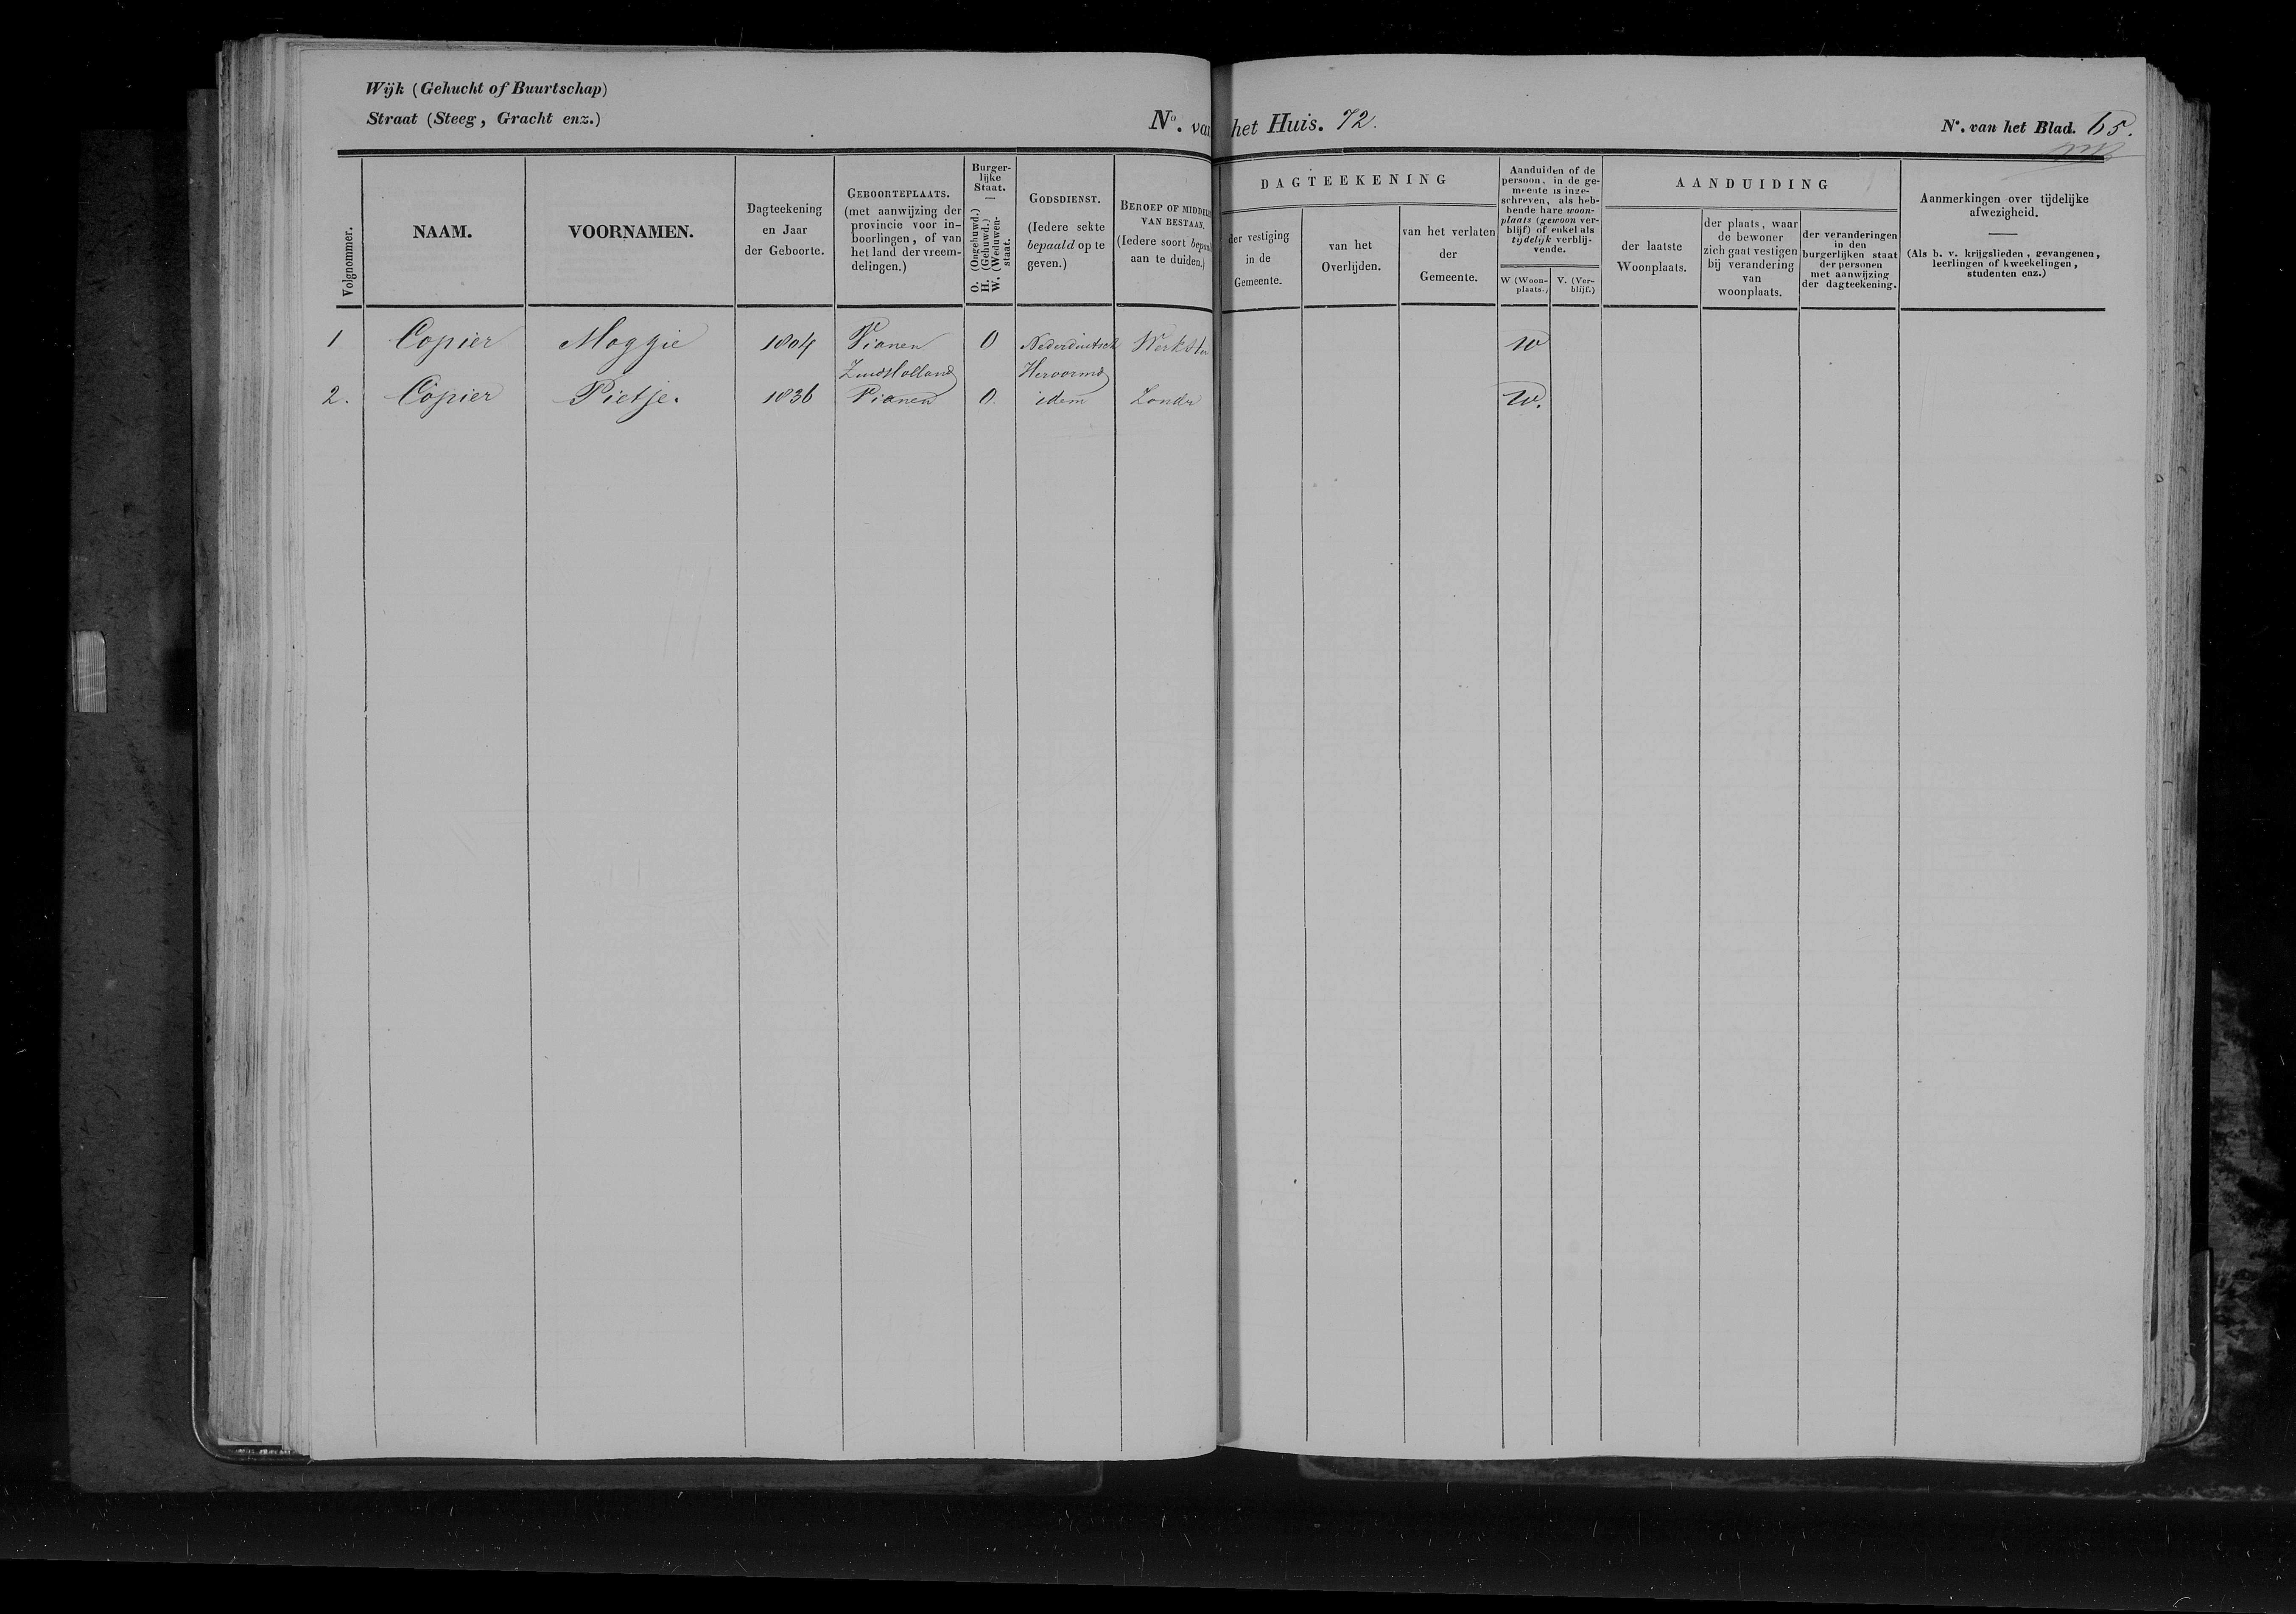 Wijk (Gehucht of Buurtschap)
Straat (Steeg, Gracht enz.)
No. van het Huis. 72.
No. van het Blad. 65.
Volgnommer.
NAAM.
VOORNAMEN.
Dagteekening
en Jaar
der Geboorte.
GEBOORTEPLAATS.
(met aanwijzing der
provincie voor in-
boorlingen, of van
het land der vreem-
delingen.)
Burger-
lijke
Staat.
O. (Ongehuwd.)
H. (Gehuwd.)
W. (Weduwen-
staat.
GODSDIENST.
(Iedere sekte
bepaald op te
geven.)
BEROEP OF MIDDELE
VAN BESTAAN.
(Iedere soort bepaal
aan te duiden.)
DAGTEEKENING
der vestiging
in de
Gemeente.
van het
Overlijden.
van het verlaten
der
Gemeente.
Aanduiden of de
persoon, in de ge-
meente is inge-
schreven, als heb-
bende hare woon-
plaats (gewoon ver-
blijf) of enkel als
tijdelijk verblij-
vende.
W (Woon-
plaats.)
V. (Ver-
blijf.)
AANDUIDING
der laatste
Woonplaats.
der plaats, waar
de bewoner
zich gaat vestigen
bij verandering
van
woonplaats.
der veranderingen
in den
burgerlijken staat
der personen
met aanwijzing
der dagteekening.
Aanmerkingen over tijdelijke
afwezigheid.
(Als b. v. krijgslieden, gevangenen,
leerlingen of kweekelingen,
studenten enz.)
1 Copier Maggie 1804 Vianen O Nederduitsch Werkster W
Zuid Holland Hervormd
2. Copier Pietje. 1836 Vianen O. idem Zonder W.